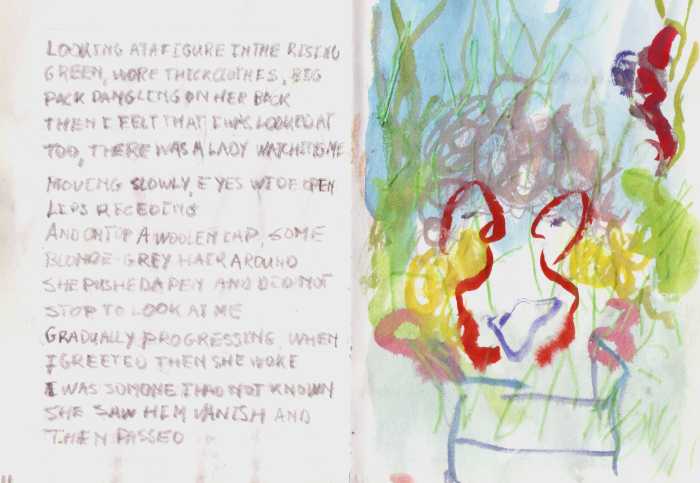 LOOKING AT A FIGURE IN THE RISING
GREEN, WORE THICK CLOTHES, BIG
PACK DANGLING ON HER BACK
THEN I FELT THAT I WAS LOOKED AT
TOO, THERE WAS A LADY WATCHING ME
MOVING SLOWLY, EYES WIDE OPEN
LIPS RECEDING
AND ON TOP A WOOLEN CAP, SOME
BLONDE-GREY HAIR AROUND
SHE PUSHED A PEN AND DID NOT
STOP TO LOOK AT ME
GRADUALLY PROGRESSING, WHEN
I GREETED THEN SHE WOKE
I WAS SOMONE I HAD NOT KNOWN
SHE SAW HIM VANISH AND
THEN PASSED